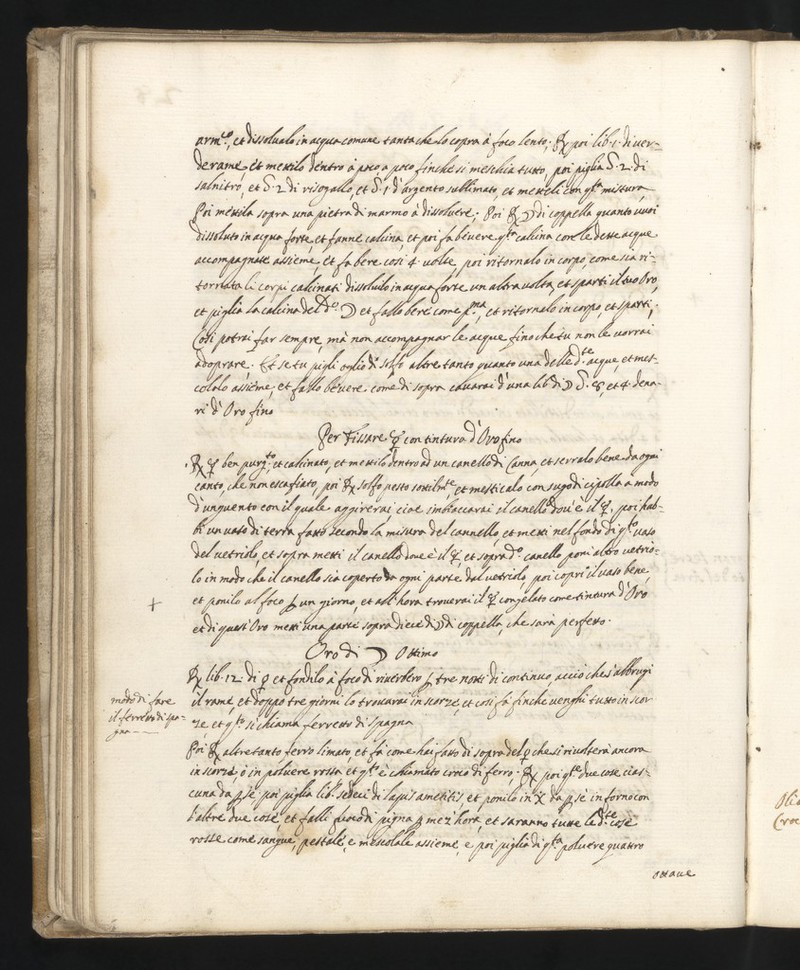 arm.co, et dissolvalo in acqua comune tanto che lo copra à foco lento; ℞ poi lib. 1. di ver-
derame, et mettilo dentro à poco a poco finche si meschia tutto, poi piglia 2. di
salnitro, et 2 di risogallo, et 1 d'argento sublimato, et metteli con q.ta mistura
Poi mettila sopra una pietra di marmo à dissolvere; Poi ℞ ☽ di coppella quanto vuoi
dissoluto in acqua forte, et fanne calcina, et poi fa bevere q.ta calcina con le dette acque
accompagnate assieme, et fa bere cosi 4 volte, poi ritornalo in corpo, come sia ri-
tornata li corpi calcinati dissolvilo in acqua forte un altra volta, et sparti il tuo Oro,
et piglia la calcina del d.o ☽ et fallo bere come p.ma, et ritornalo in corpo, et sparti;
Cosi potrai far sempre, mà non accompagnar le acque fino che tu non le vorrai
adoprare. Et se tu pigli oglio di solfo altre tanto quanto una delle d.te acque, et mes-
colalo assieme, et fallo bevere come di sopra cavarai d'una lib. di ☽ et 4. dena-
ri d'Oro fino
Per Fissare ☿ con tintura d'Oro fino
℞ ☿ ben purg.to, et calcinato, et mettilo dentro ad un canello di Canna et serralo bene da ogni
canto, che non escafiato, poi ℞ solfo pesto sottilm.te, et mesticalo con sugo di cipolla a modo
d'unguento con il quale aggirerai cioè imbiaccarai il canello dov'è il ☿, poi hab-
bi un vaso di terra fatto secondo la misura del cannello, et metti nel fondo di q.to vaso
del vetriolo, et sopra metti il canello dove è il ☿, et sopra d.o canello poni altro vetrio-
lo in modo che il canello sia coperto da ogni parte dal vetriolo, poi copri il vaso bene,
et ponilo al foco p un giorno, et all'hora troverai il ☿ congelato come tintura d'Oro
et di quest'Oro metti una parte sopra diece di ☽ di coppella, che sarà perfetto.
Oro di ☽ Ottimo
℞ lib. 12. di ♀ et fondilo à foco di riverbero p tre notti di continuo, acciò che s'abbrugi
il rame, et doppo tre giorni lo trovarai in scorze, et cosi fà finche venghi tutto in scor
ze, et q.to si chiama ferretto di Spagna
modo di fare
il ferretto di spa-
gna
Poi ℞ altretanto ferro limato, et fà come hai fatto di sopra del ♀ che si rivolterà ancora
in scorze, ò in polvere rossa et q.to è chiamato croco di ferro. ℞ poi q.te due cose cias-
cuna da p sè poi piglia lib. sedeci di lapis ametitis, et ponilo in da p sè in forno con
l'altre due cose, et falli fuoco di pigna p mez'hora, et saranno tutte le d.te cose
rosse come sangue, pestale, e mescolale assieme, e poi piglia di q.ta polvere quattro
ottave